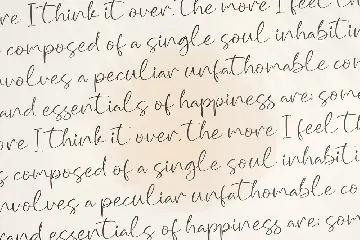 re I think it over. The more I feel th
composed of a single soul inhabitin
nvolves a peculiar unfathomable con
and essentials of happiness are: some
ore I think it over. The more I feel th
s composed of a single soul inhabiti
involves a peculiar unfathomable co
and essentials of happiness are: som